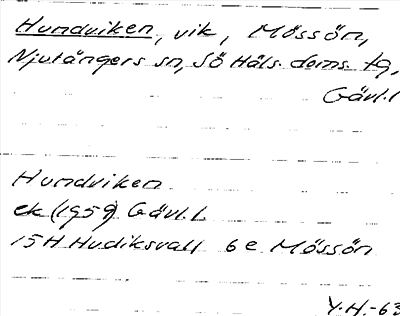 Hundviken, vik, Mössön,
Njutångers sn, Sö Häls. doms. tg,
Gävl.l
Hundviken
ek (1959) Gävl.L
15H Hudiksvall 6e Mössön
Y.H.-63